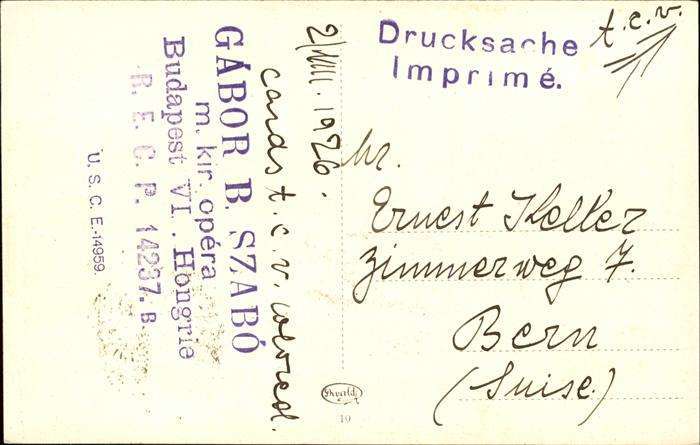 Drucksache
Imprimé.
t.c.v.
2/VIII. 1926.
cards t.c.v. colored.
GÁBOR B. SZABÓ
m. kir. opéra
Budapest VI. Hongrie
R. E. C. P. 14237. B.
U. S. C. E.-14959.
Ernest Keller
Zimmerweg 7.
Bern
(Suise)
10